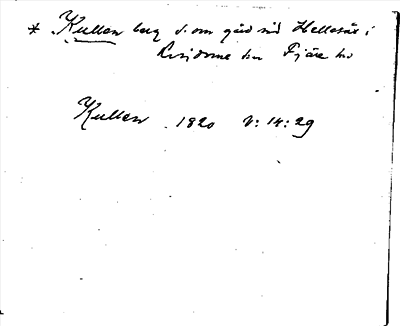 * Kullen berg S. om gård vid Hellesåk i
Lindome sn Fjäre hd
Kullen 1820 V: 14: 29